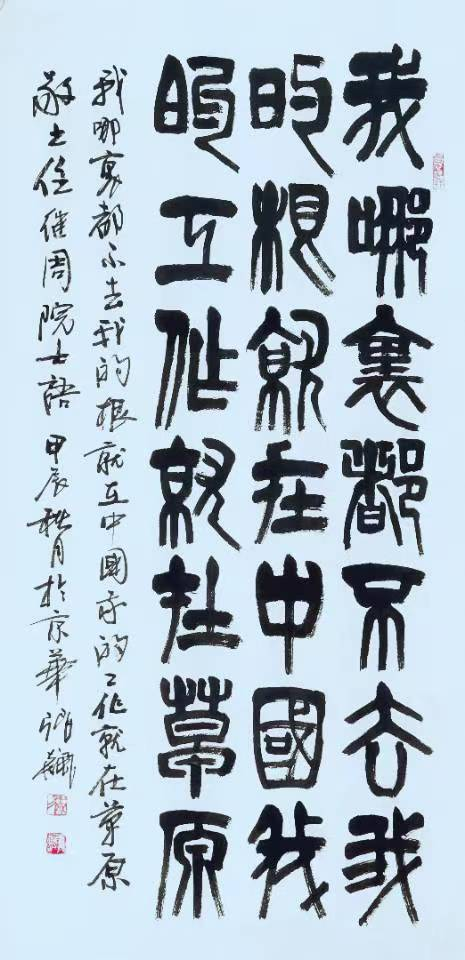 我哪裏都不去我
的根就在中國我
的工作就在草原
我哪裏都不去我的根就在中國我的工作就在草原
敬书任继周院士語 甲辰秋月於京華